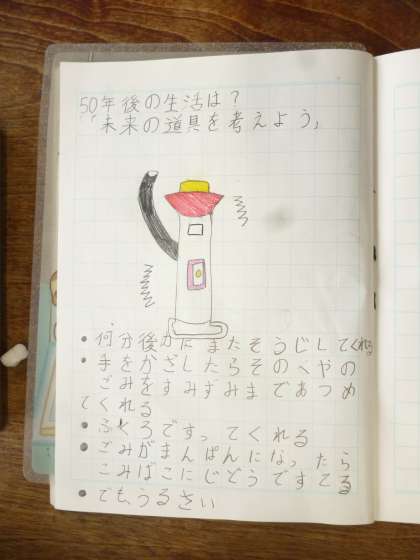 50年後の生活は?
「未来の道具を考えよう」
●何分後かにまたそうじしてくれる
●手をかざしたらそのへやの
ごみをすみずみまであつめ
てくれる
●ふくろですってくれる
●ごみがまんぱんになったら
ごみばこにじどうですてる
●でも、うるさい